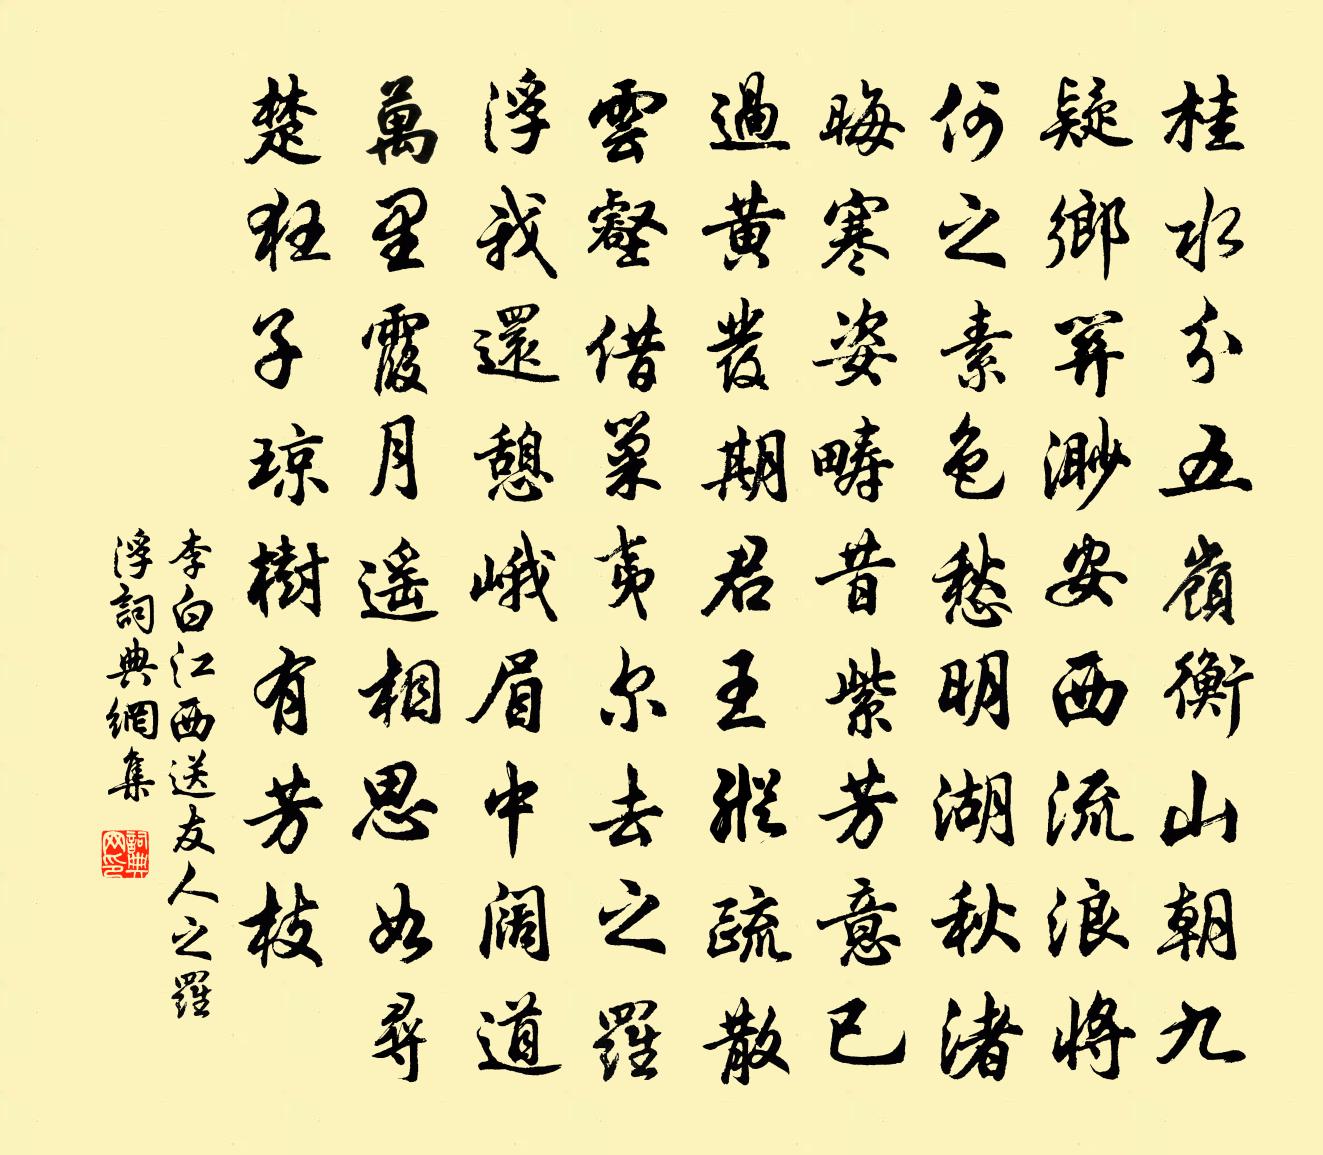 桂水分五嶺衡山朝九
疑鄉關渺安西流浪將
何之素色愁明湖秋渚
晦寒姿疇昔紫芳意已
過黃發期君王縱疏散
雲壑借巢夷尔去之羅
浮我還憩峨眉中闊道
萬里霞月遙相思如尋
楚狂子琼樹有芳枝
李白江西送友人之羅
浮詞典網集
詞典網印